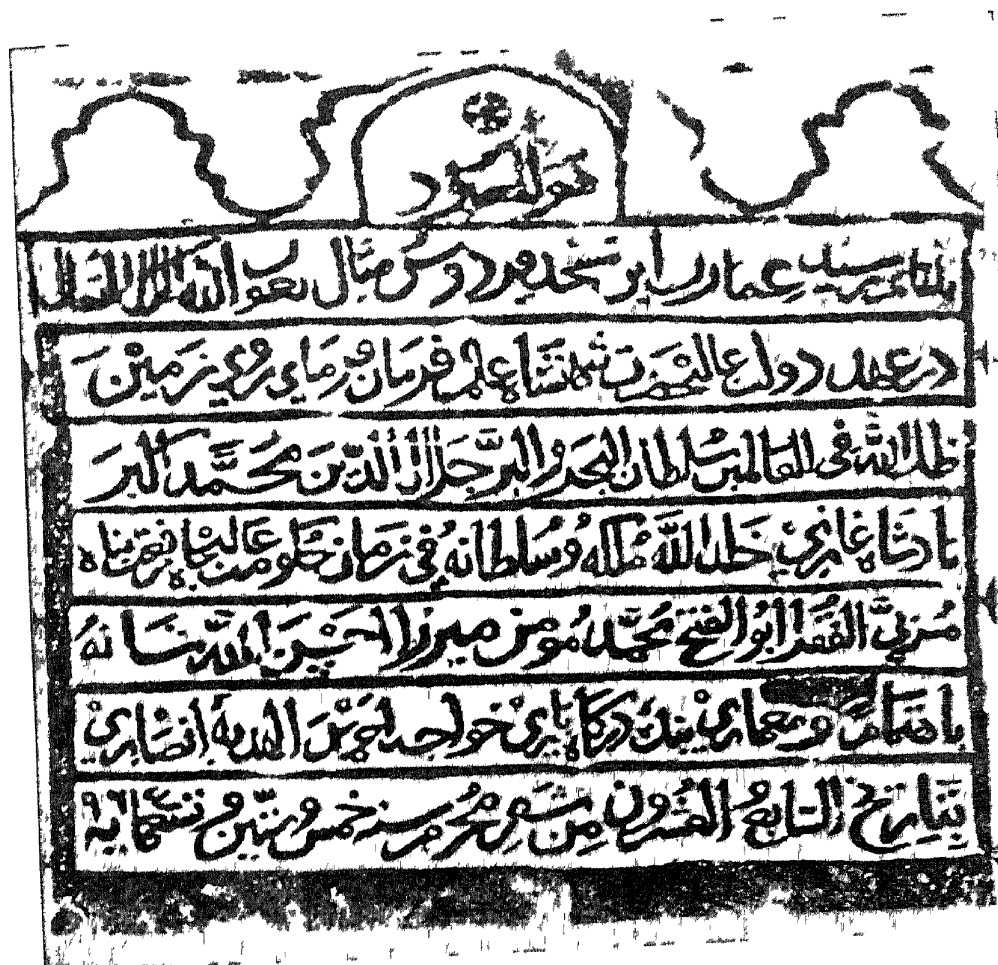 هو المعبود
باتمام رسید عمارت این مسجد فردوس مثال بعون الله الملک المتعال
در عهد دولت عالیحضرت شهنشاه عالم فرمان فرمای روی زمین
ظل الله فی العالمین سلطان البحر والبر جلال الدین محمد اکبر
بادشاه غازی خلد الله ملکه وسلطانه فی زمان حکومت عالیجاه
مربی الفقرا ابو الفتح محمد مومن میرزا احسن الله
باهتمام ومعماری بنده درگاه باری خواجه احمد انصاری
بتاریخ السابع والعشرون من شهر محرم سنه خمس وستین وتسعمایه ۹۶